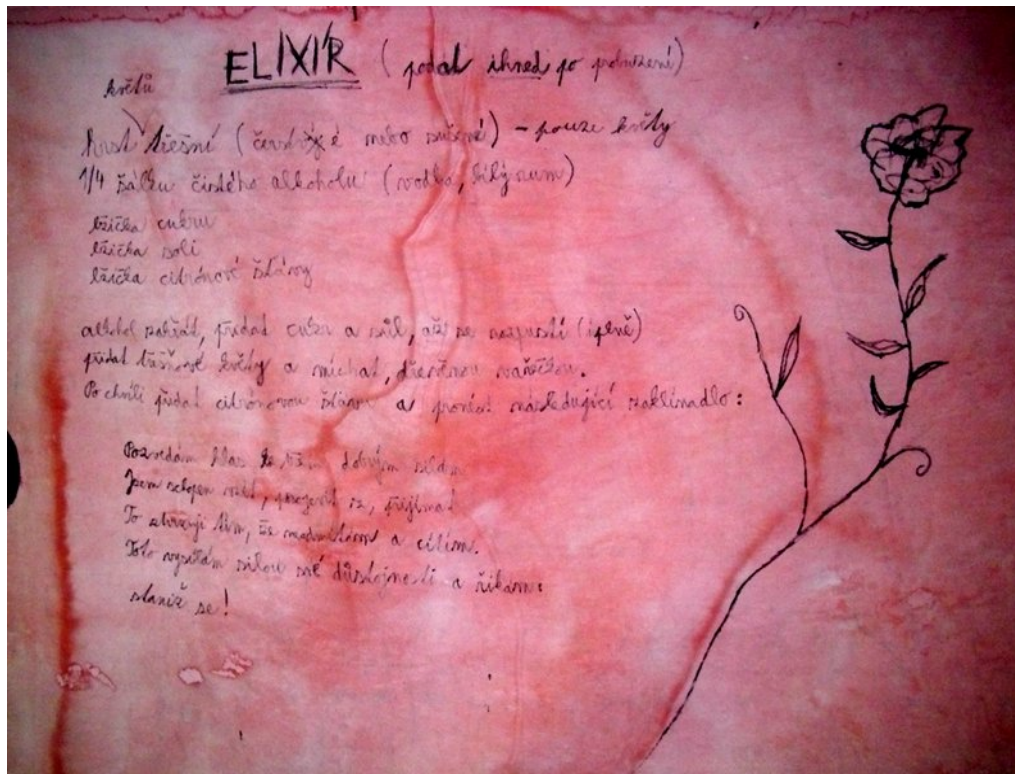 ELIXÍR (podat ihned po probuzení)
květů
hrst třešní (čerstvé nebo sušené) - pouze květy
1/4 šálku čistého alkoholu (vodka, bílý rum)
lžička cukru
lžička soli
lžička citrónové šťávy
alkohol zahřát, přidat cukr a sůl, až se rozpustí (úplně)
přidat třešňové květy a míchat, dřevěnou vařečkou.
Po chvíli přidat citrónovou šťávu a pronést následující zaklínadlo:
Pozvedám hlas ke všem dobrým silám
Jsem schopen, přijímat
To stvrzuji tím, že a cítím.
Toto vysílám silou své důstojnosti a říkám:
staniž se!